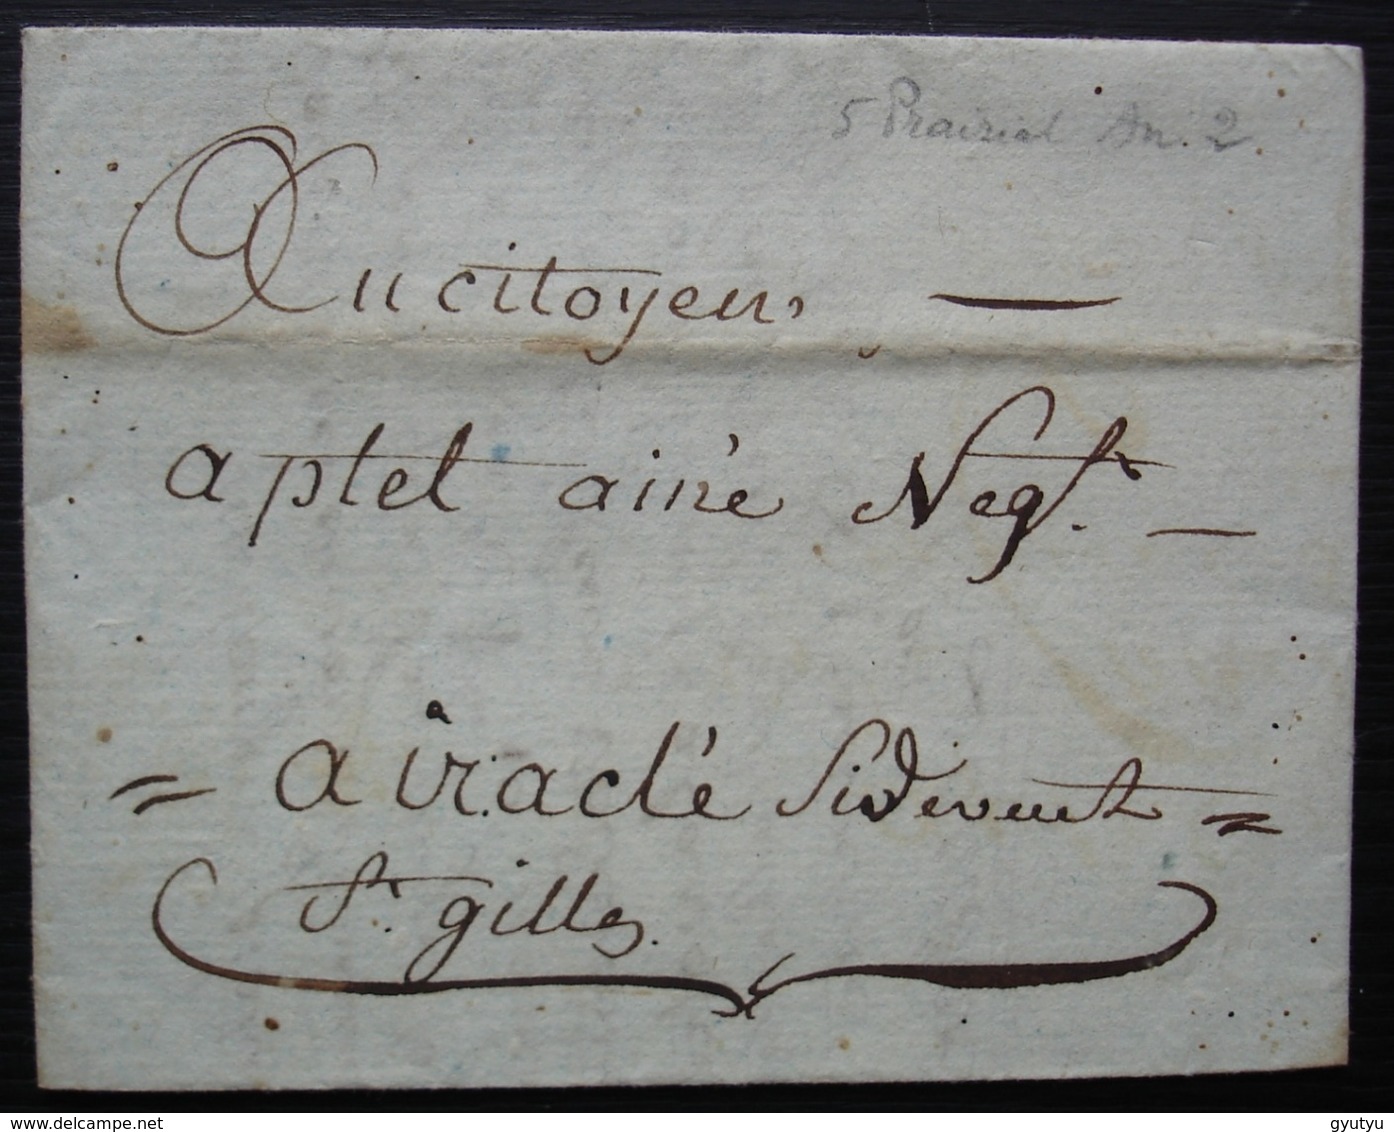 5 Prairial An. 2
Au citoyen
aptel ainé Negt.
a iraclé Sidevent
St. gilles.
www.delcampe.net
gyutyu